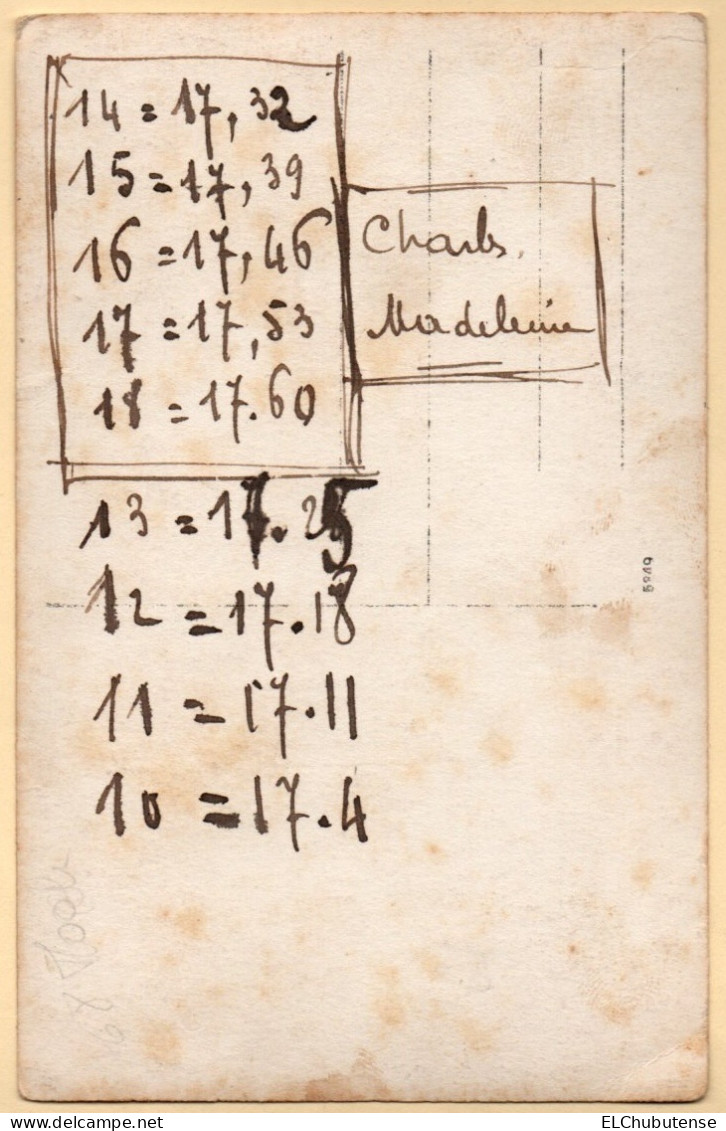 14 = 17, 32
15 = 17, 39
16 = 17, 46
17 = 17, 53
18 = 17.60
Charles.
Madeleine
13 = 17.25
12 = 17.18
11 = 17.11
10 = 17.4
5949
ELChubutense